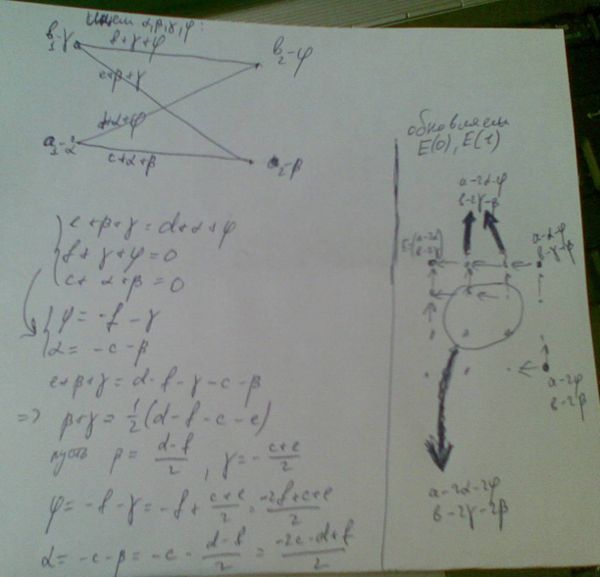 Ищем α, β, γ, φ:
b₁-γ f+γ+φ b₂-φ
e+β+γ
d+α+φ
a₁-α c+α+β a₂-β
e+β+γ=d+α+φ
f+γ+φ=0
c+α+β=0
φ=-f-γ
α=-c-β
e+β+γ=d-f-γ-c-β
=> β+γ=½(d-f-c-e)
пусть β=(d-f)/2, γ=-(c+e)/2
φ=-f-γ=-f+(c+e)/2=(-2f+c+e)/2
α=-c-β=-c-(d-f)/2=(-2c-d+f)/2
обновляем
E(0), E(1)
a-2α-φ
b-2γ-β
a-2α
b-2γ
a-α-φ
b-γ-β
a-2φ
b-2β
a-2α-2φ
b-2γ-2β